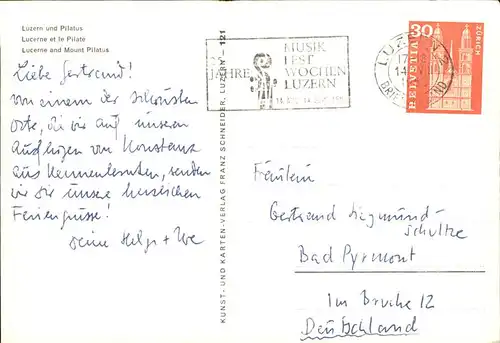 Luzern und Pilatus
Lucerne et le Pilate
Lucerne and Mount Pilatus
Liebe Gertraud!
von einem der schönsten
Orte, die wir auf unseren
Ausflügen von Konstanz
aus kennenlernten, senden
wir Dir unsere herzlichen
Feriengrüsse!
Deine Helga + Uwe
KUNST- UND KARTEN-VERLAG FRANZ SCHNEIDER, LUZERN – 121
JAHRE
MUSIK
FEST
WOCHEN
LUZERN
LUZERN 2
30
HELVETIA
ZÜRICH
Fräulein
Gertraud Siegmund-
Schultze
Bad Pyrmont
Im Bruche 12
Deutschland